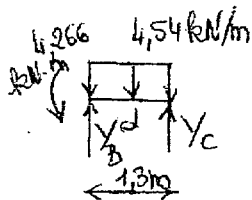 4,266 kN·m
4,54 kN/m
Y_B^d
Y_C
1,3m